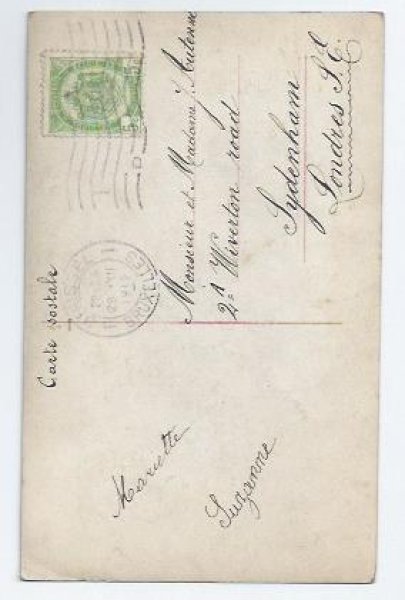 Carte postale
BRUXELLES
Monsieur et Madame J. Autenne
2A Wiverton road
Sydenham
Londres S.E.
Mariette
Suzanne